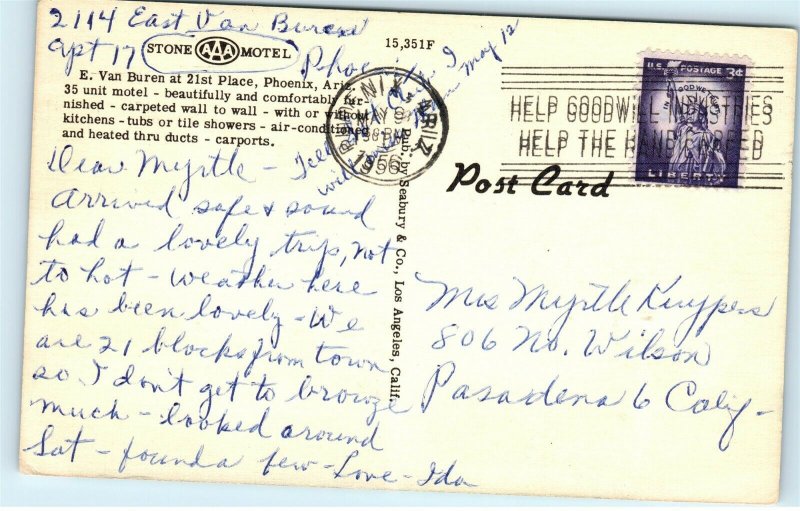 2114 East Van Buren
Apt 17
Phoenix
STONE AAA MOTEL
15,351F
E. Van Buren at 21st Place, Phoenix, Ariz.
35 unit motel - beautifully and comfortably fur-
nished - carpeted wall to wall - with or without
kitchens - tubs or tile showers - air-conditioned
and heated thru ducts - carports.
Dear Myrtle - Tell
I
will
May 12
Arrived safe & sound
had a lovely trip, not
to hot - weather here
has been lovely - We
are 21 blocks from town
so I don't get to browze
much - looked around
Sat - found a few - Love - Ida
Pub. by Seabury & Co., Los Angeles, Calif.
PHOENIX, ARIZ.
MAY 9
1956
HELP GOODWILL INDUSTRIES
HELP THE HANDICAPPED
U.S. POSTAGE 3¢
IN GOD WE TRUST
LIBERTY
Post Card
Mrs Myrtle Kuypers
806 No. Wilson
Pasadena 6 Calif-